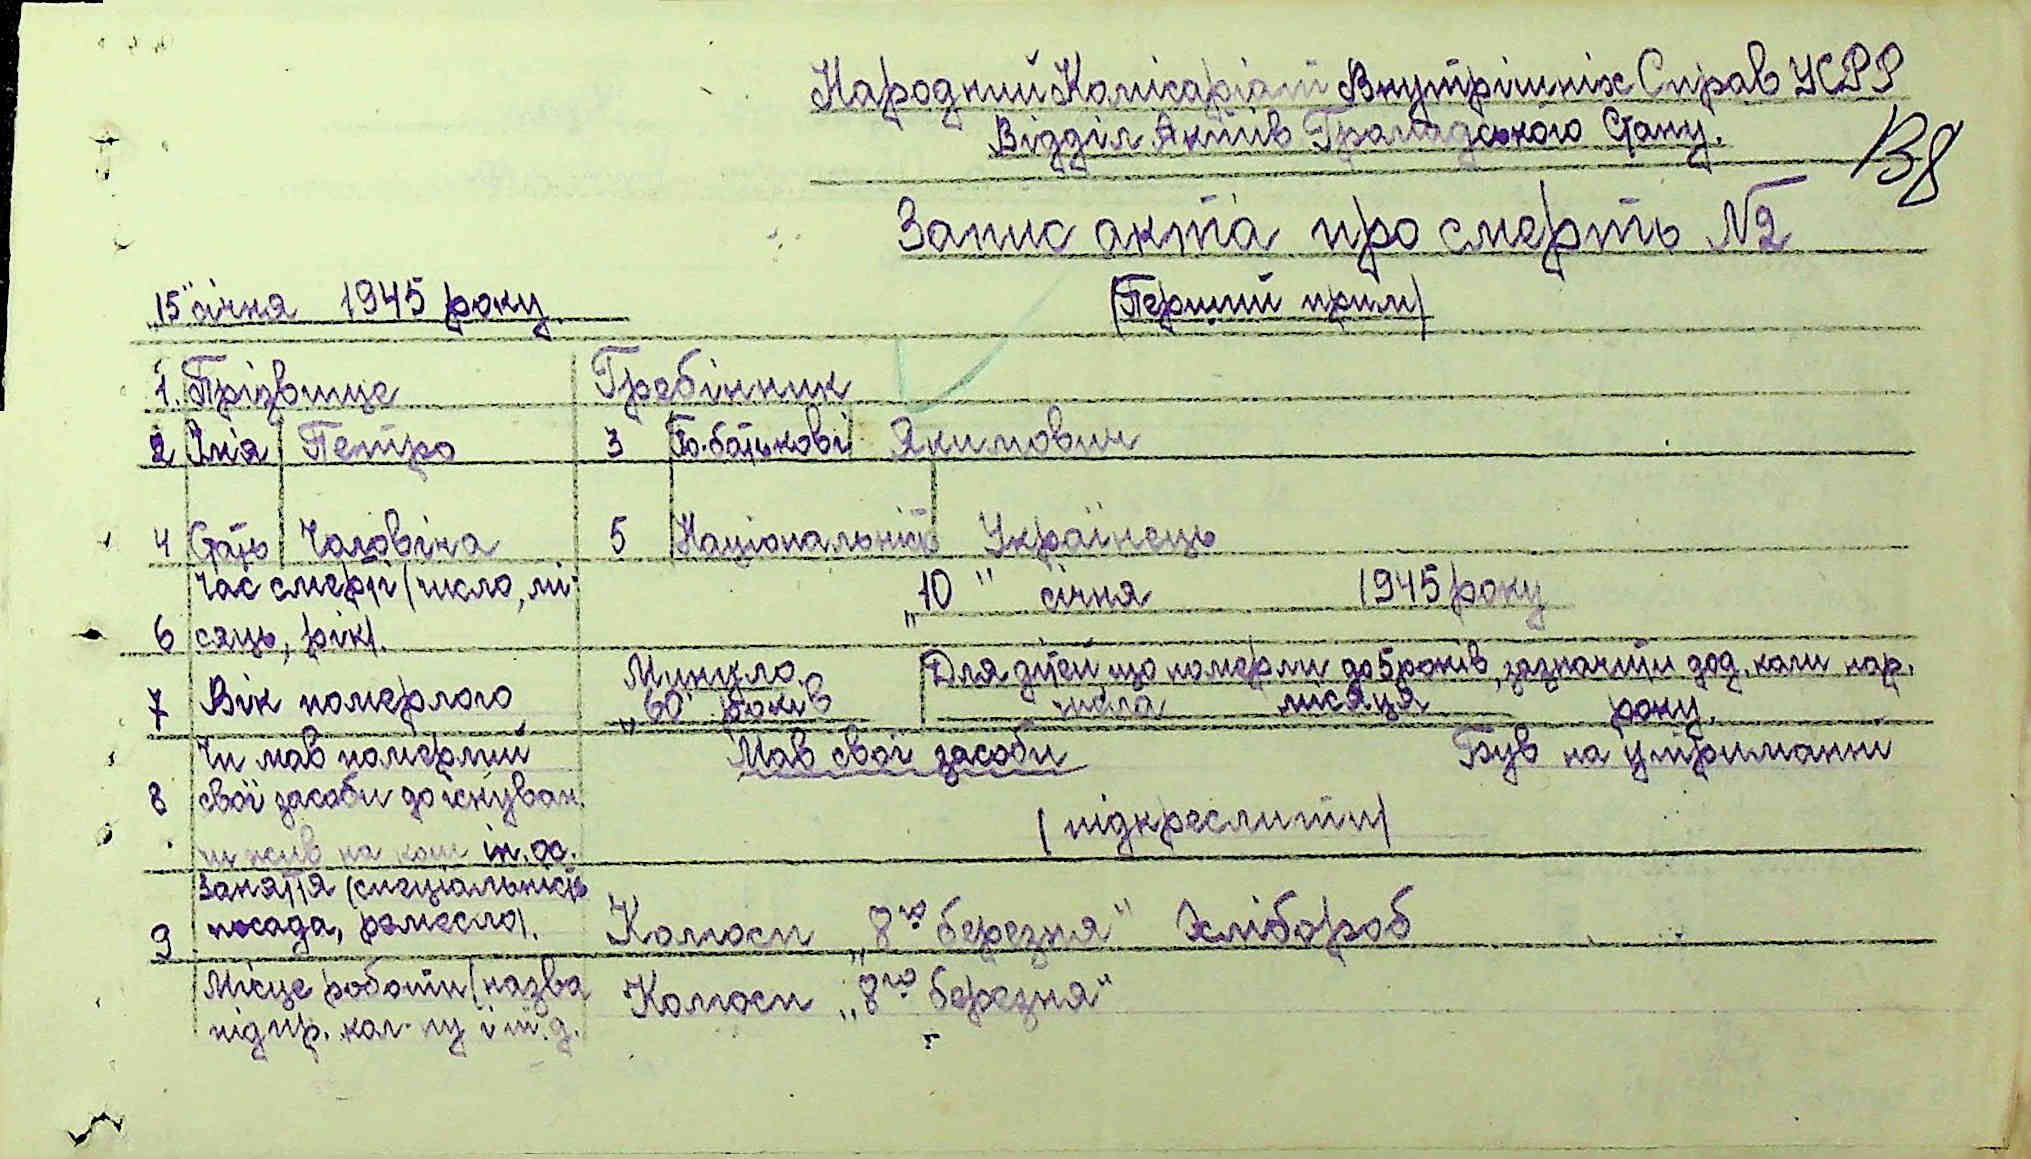 Народний Комісаріат Внутрішніх Справ УСРР
Відділ Актів Громадського Стану.
В8
Запис акта про смерть №2
„15" січня 1945 року
(Перший прим)
1. Прізвище Гребінник
2 Ім'я Петро 3 По-батькові Якимович
4 Стать Чоловіча 5 Національність Українець
Час смерті (число, мі- „10" січня 1945 року
6 сяць, рік).
7 Вік померлого Минуло „60" років Для дітей що померли до 5 років, зазначити дод. коли нар.
числа місяця року.
Чи мав померлий Мав свої засоби Був на утриманні
8 свої засоби до існуван.
чи жив на кош ін. ос. (підкреслити)
Заняття (спеціальність
9 посада, ремесло). Колгосп „8го березня" хлібороб
Місце роботи (назва Колгосп „8го березня"
підпр. кол-пу і т. д.